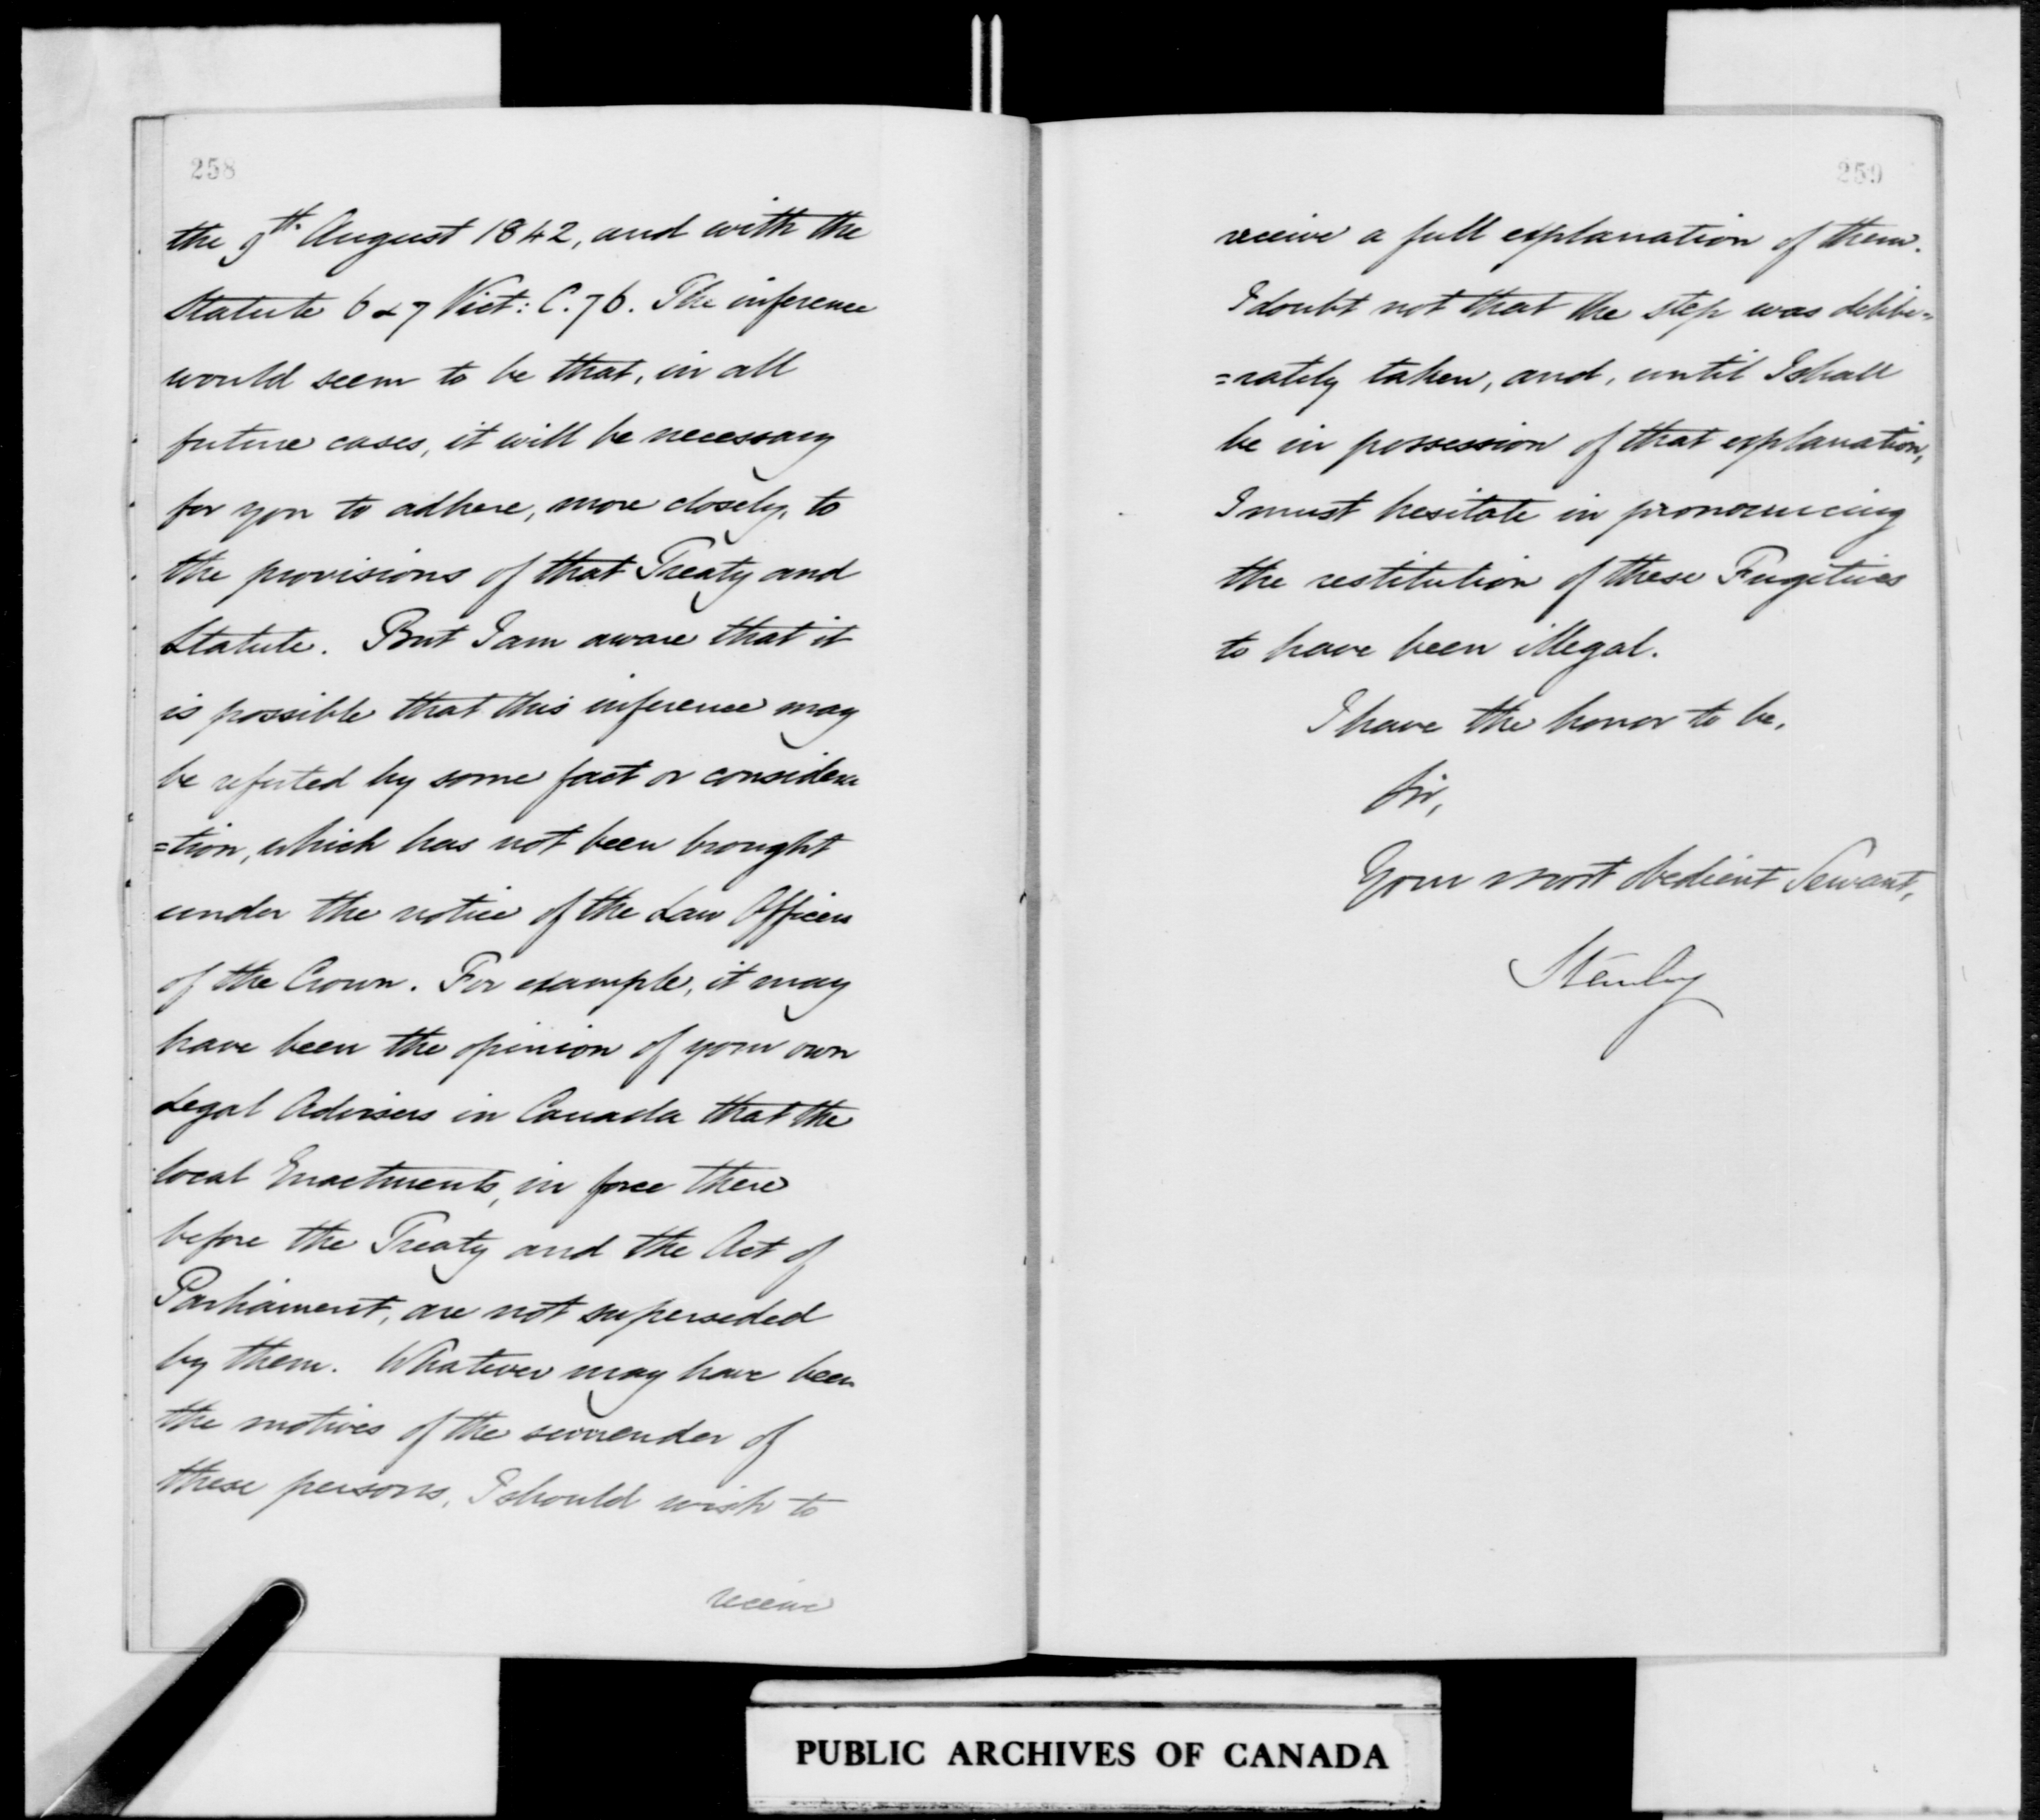 258
the 9th. August 1842, and with the
Statute 6 & 7 Vict: C. 76. The inference
would seem to be that, in all
future cases, it will be necessary
for you to adhere, more closely, to
the provisions of that Treaty and
Statute. But I am aware that it
is possible that this inference may
be refuted by some fact or considera
=tion, which has not been brought
under the notice of the Law Officers
of the Crown. For example, it may
have been the opinion of your own
Legal Advisers in Canada that the
local Enactments, in force there
before the Treaty and the Act of
Parliament, are not superseded
by them. Whatever may have been
the motives of the surrender of
these persons, I should wish to
receive
259
receive a full explanation of them.
I doubt not that the step was delibe=
=rately taken, and, until I shall
be in possession of that explanation,
I must hesitate in pronouncing
the restitution of these Fugitives
to have been illegal.
I have the honor to be,
Sir,
Your most obedient Servant,
Stanley
PUBLIC ARCHIVES OF CANADA